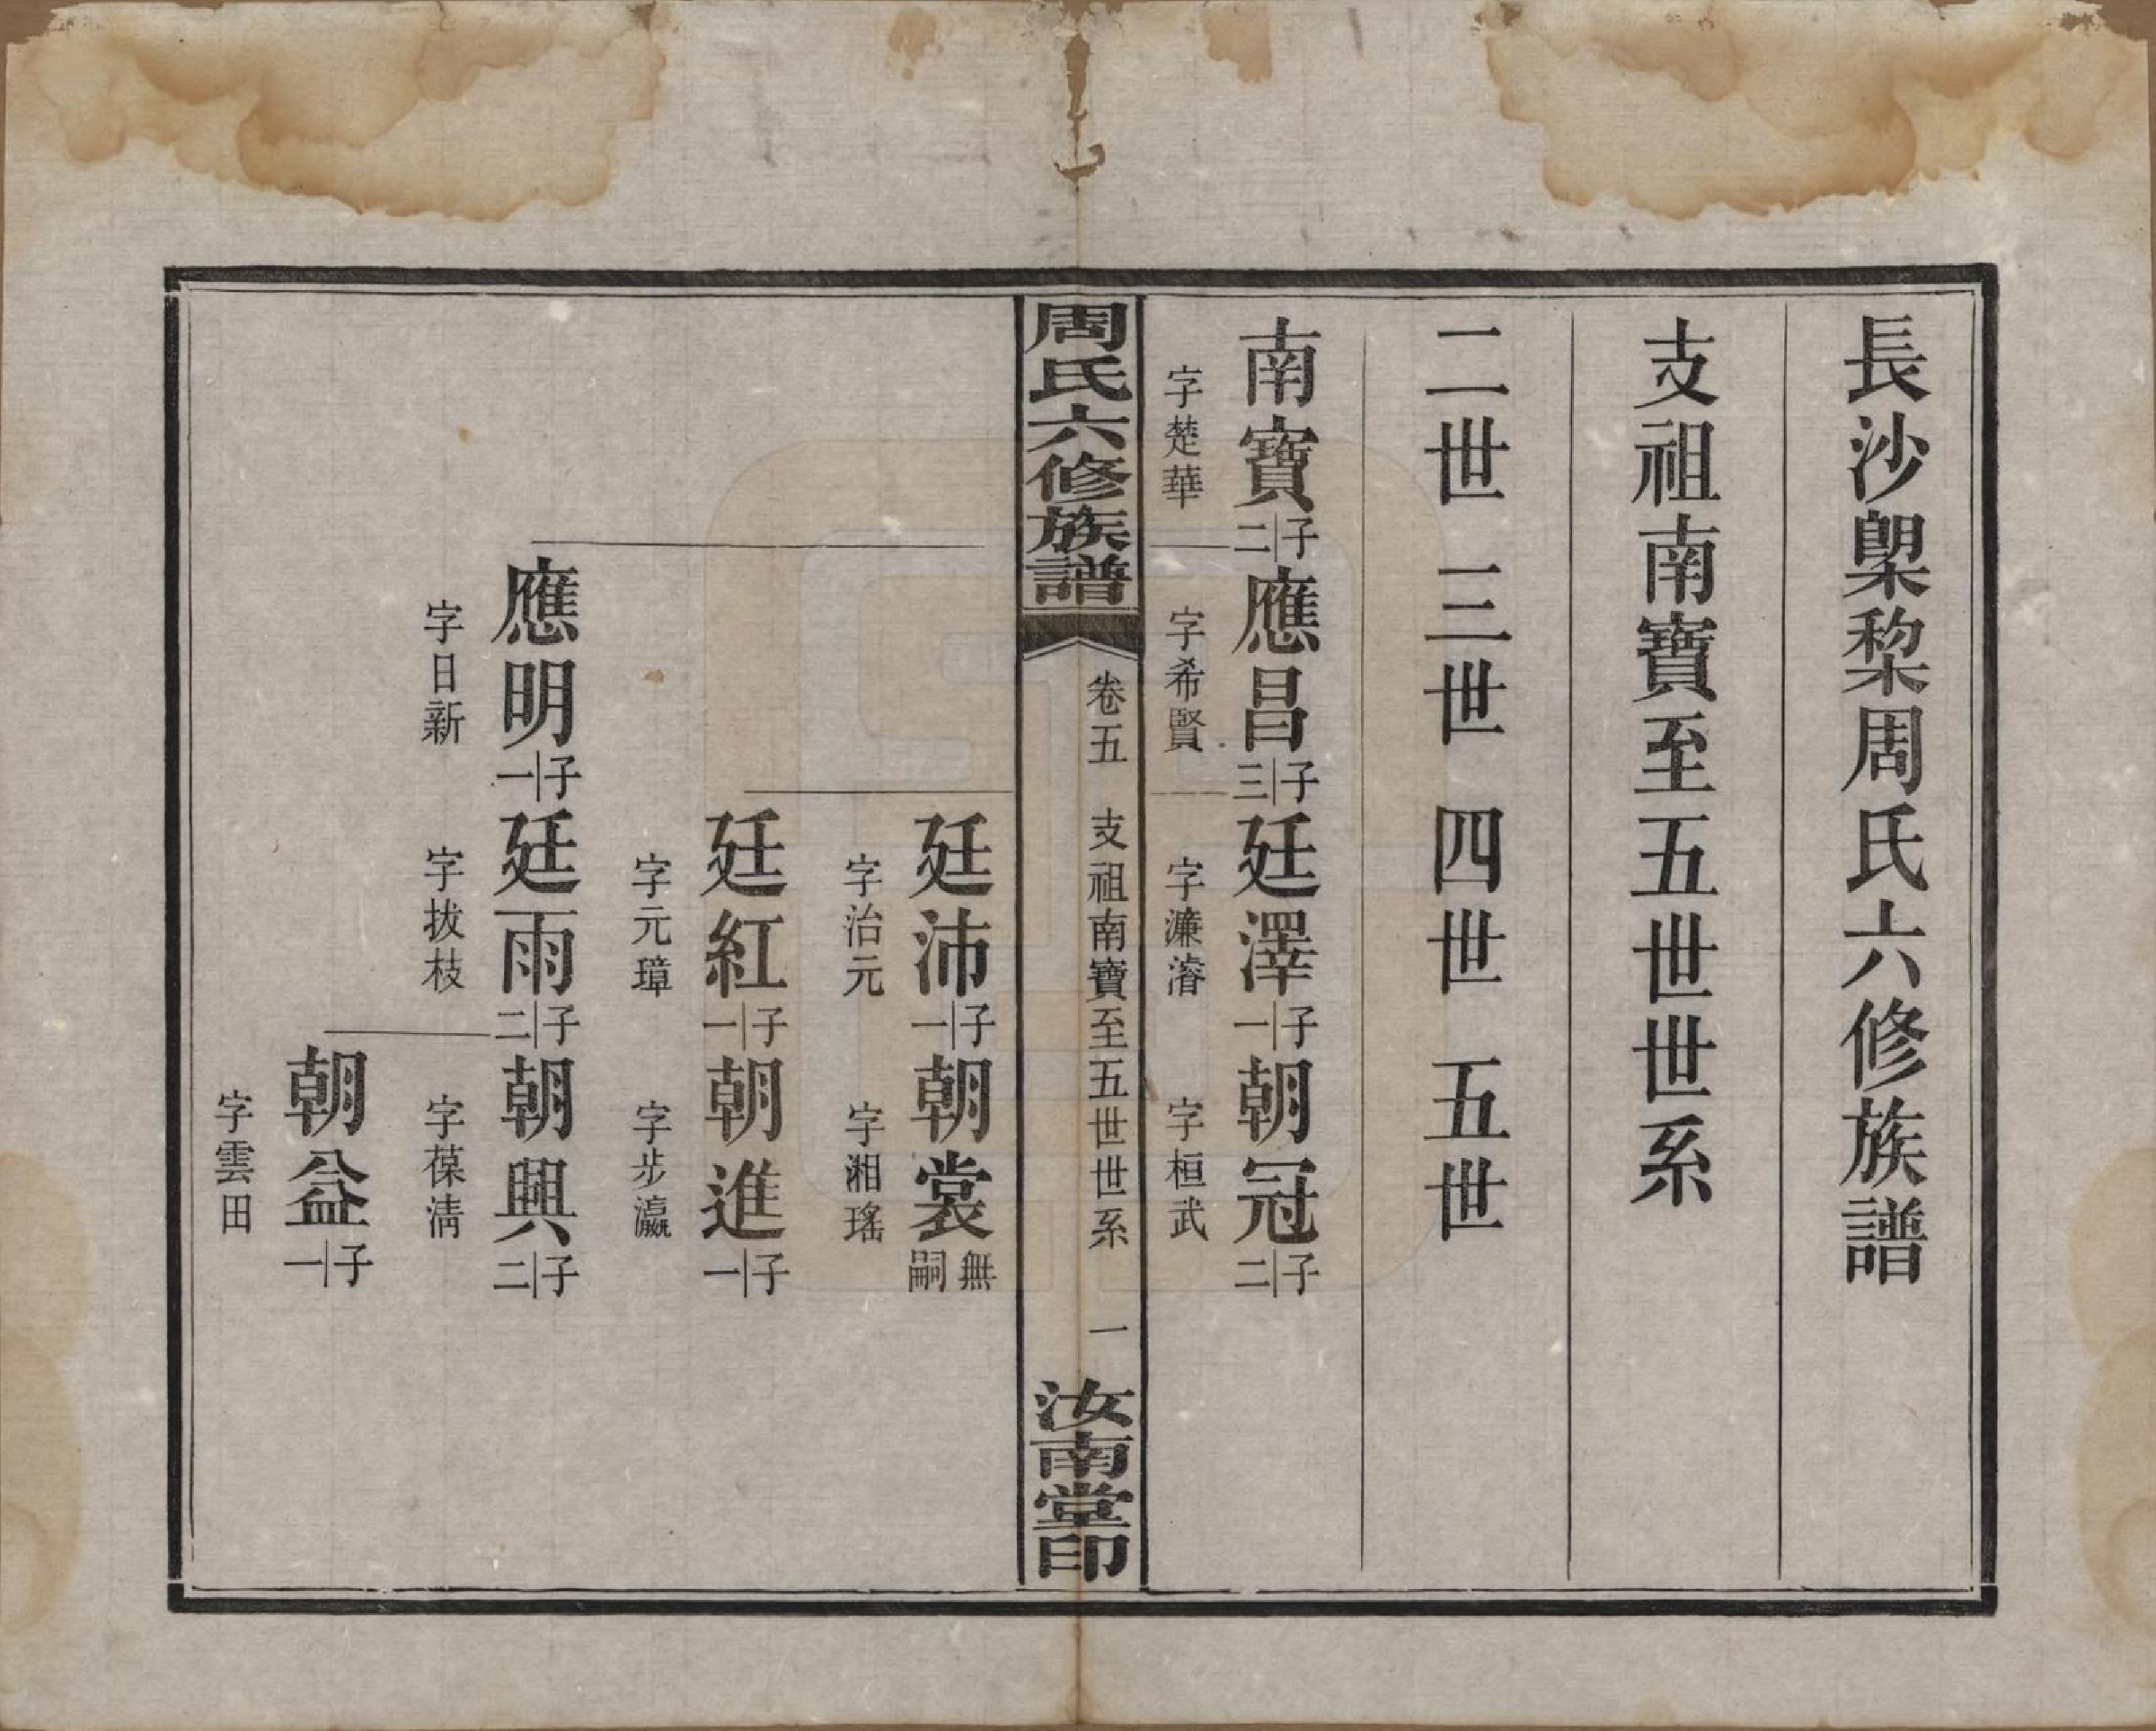 長沙㮚棃周氏六修族譜
支祖南寶至五世世系
二世 三世 四世 五世
南寶二子應昌三子廷澤一子朝冠二子
字楚華 字希賢 字濂濬 字桓武
周氏六修族譜 卷五 支祖南寶至五世世系 一 汝南堂印
廷沛一子朝裳無嗣
字治元 字湘瑤
廷紅一子朝進一子
字元璋 字步瀛
應明一子廷雨二子朝興二子
字日新 字拔枝 字葆清
朝益一子
字雲田